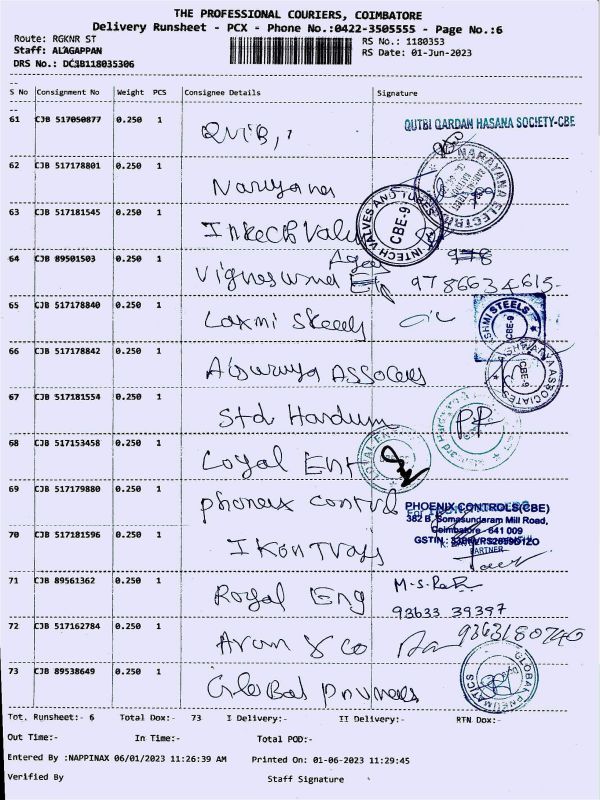 THE PROFESSIONAL COURIERS, COIMBATORE
Delivery Runsheet - PCX - Phone No.:0422-3505555 - Page No.:6
Route: RGKNR ST
RS No.: 1180353
Staff: ALAGAPPAN
RS Date: 01-Jun-2023
DRS No.: DCJB118035306
S No Consignment No Weight PCS Consignee Details Signature
61 CJB 517050877 0.250 1
QUTBI QARDAN HASANA SOCIETY-CBE
62 CJB 517178801 0.250 1 Narayana
NARAYANA ELECTRI
63 CJB 517181545 0.250 1 Intech Valv
INTECH VALVES AND TUBES CBE-9
64 CJB 89501503 0.250 1
Agen
9786634615
65 CJB 517178840 0.250 1 Laxmi Steels
SHMI STEELS CBE-9
66 CJB 517178842 0.250 1
AISHWARYA ASSOCIATES CBE-9
67 CJB 517181554 0.250 1 Std Hardum
68 CJB 517153458 0.250 1 Loyal Ent
LOYAL EN
69 CJB 517179880 0.250 1 phoneix control
PHOENIX CONTROLS(CBE)
382 B, Somasundaram Mill Road,
Coimbatore - 641 009
GSTIN.:
PARTNER
70 CJB 517181596 0.250 1 Ikon Trays
71 CJB 89561362 0.250 1 Royal Eng
93633 39397
72 CJB 517162784 0.250 1 Arun & co
9363180740
73 CJB 89538649 0.250 1 Global pnumees
GLOBAL PNEUMATICS
Tot. Runsheet:- 6 Total Dox:- 73 I Delivery:- II Delivery:- RTN Dox:-
Out Time:- In Time:- Total POD:-
Entered By :NAPPINAX 06/01/2023 11:26:39 AM Printed On: 01-06-2023 11:29:45
Verified By Staff Signature